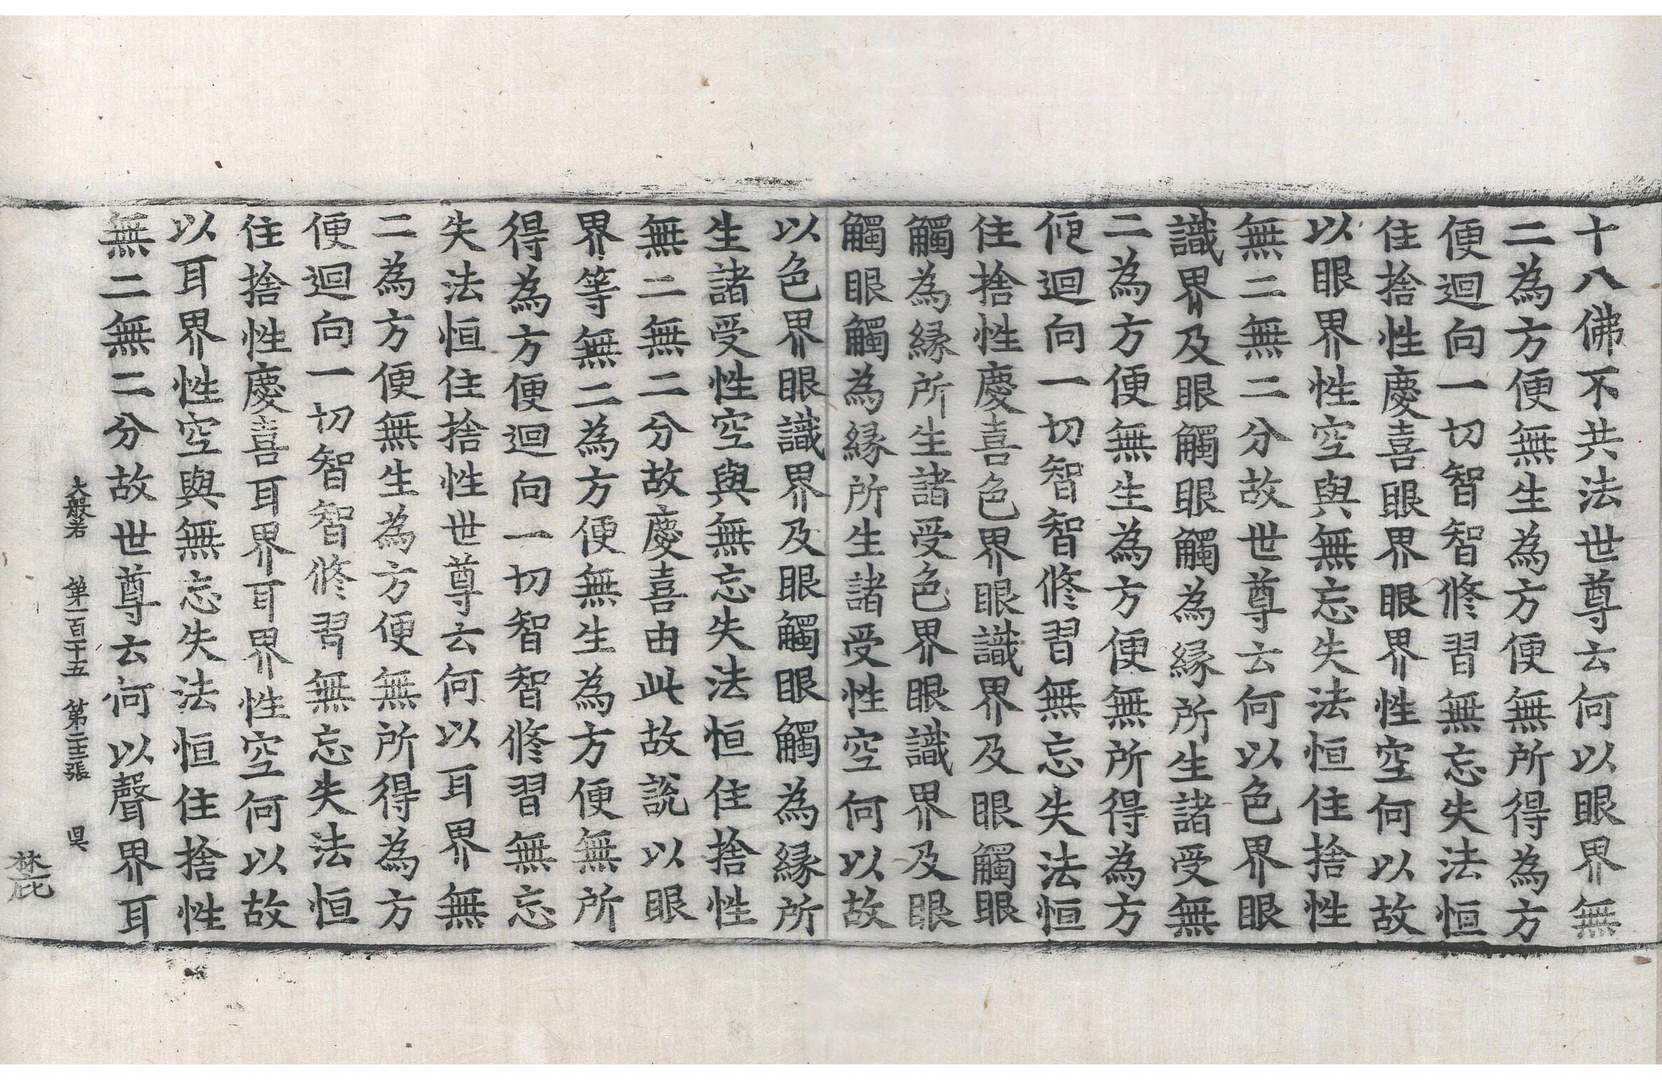 十八佛不共法世尊云何以眼界無
二為方便無生為方便無所得為方
便迴向一切智智修習無忘失法恒
住捨性慶喜眼界眼界性空何以故
以眼界性空與無忘失法恒住捨性
無二無二分故世尊云何以色界眼
識界及眼觸眼觸為縁所生諸受無
二為方便無生為方便無所得為方
便迴向一切智智修習無忘失法恒
住捨性慶喜色界眼識界及眼觸眼
觸為縁所生諸受色界眼識界及眼
觸眼觸為縁所生諸受性空何以故
以色界眼識界及眼觸眼觸為縁所
生諸受性空與無忘失法恒住捨性
無二無二分故慶喜由此故說以眼
界等無二為方便無生為方便無所
得為方便迴向一切智智修習無忘
失法恒住捨性世尊云何以耳界無
二為方便無生為方便無所得為方
便迴向一切智智修習無忘失法恒
住捨性慶喜耳界耳界性空何以故
以耳界性空與無忘失法恒住捨性
無二無二分故世尊云何以聲界耳
大般若 第一百十五 第二十三張 昃